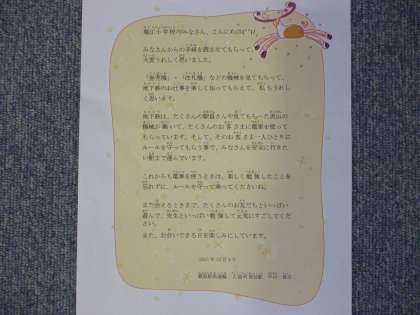 堀江小学校のみなさん、こんにちは(^^)/
みなさんからの手紙を読ませてもらって、
大変うれしく思いました。
「券売機」・「改札機」などの機械を見てもらって、
地下鉄のお仕事を楽しく知ってもらえて、私もうれし
く思います。
地下鉄は、たくさんの駅員さんや見てもらった沢山の
機械が働いて、たくさんのお客さまに電車を使って
もらっています。そして、そのお客さま一人ひとりに
ルールを守ってもらう事で、みなさんを安全に行きた
い駅まで運んでいます。
これからも電車を使うときは、楽しく勉強したことを
忘れずに、ルールを守って乗ってくださいね。
また会えるときまで、たくさんのお友だちといっぱい
遊んで、先生といっぱい勉強して元気にすごしてくだ
さい。
また、お会いできる日を楽しみにしています。